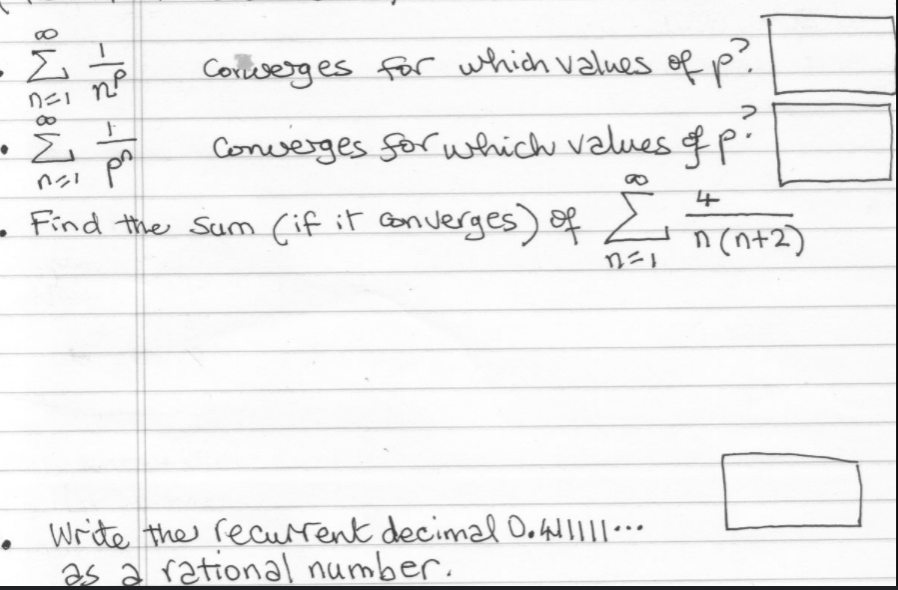 • ∑_{n=1}^{∞} 1/n^p converges for which values of p?
• ∑_{n=1}^{∞} 1/p^n converges for which values of p?
• Find the sum (if it converges) of ∑_{n=1}^{∞} 4/(n(n+2))
• Write the recurrent decimal 0.411111...
as a rational number.